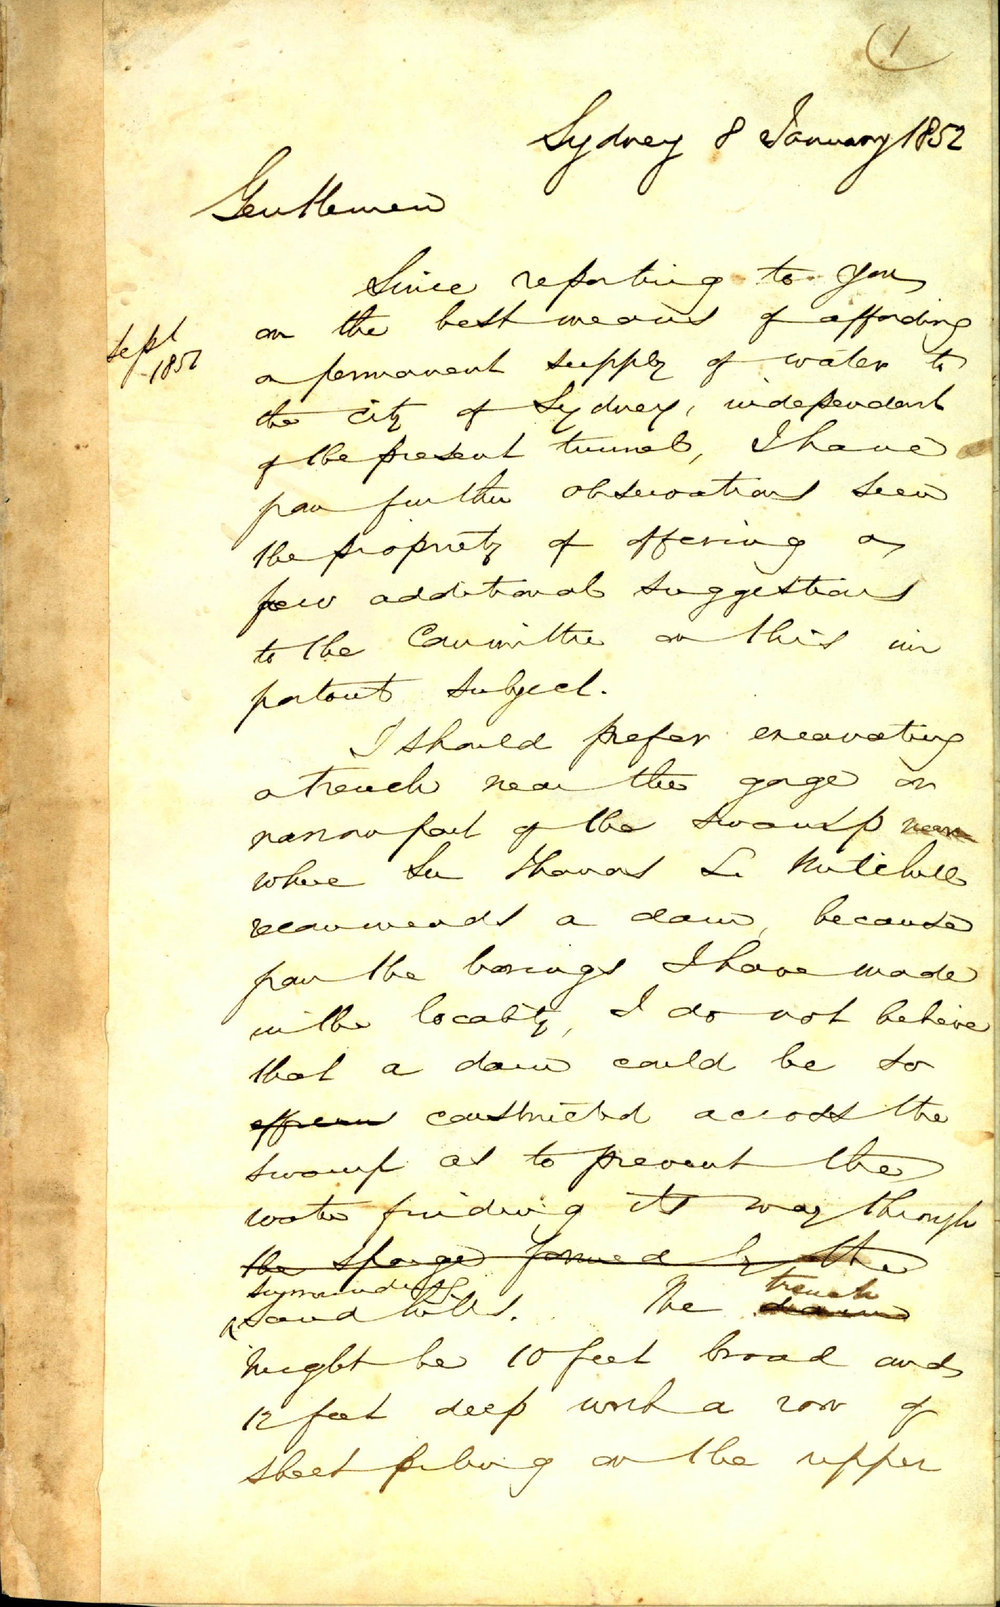 (1)
Sydney 8 January 1852
Gentlemen
Since reporting to you
Sept
1851
on the best means of affording
a permanent supply of water to
the city of Sydney, independent
of the present tunnel, I have
from further observations seen
the propriety of offering a
few additional suggestions
to the Committee on this im
portant subject.
I should prefer excavating
a trench near the gorge or
narrow part of the swamp near
where Sir Thomas L. Mitchell
recommends a dam, because
from the borings I have made
in the locality, I do not believe
that a dam could be so
constructed across the
swamp as to prevent the
water finding its way through
the sponge formed by the
surrounding
sand hills. The dam trench
might be 10 feet broad and
12 feet deep with a row of
sheet piling on the upper